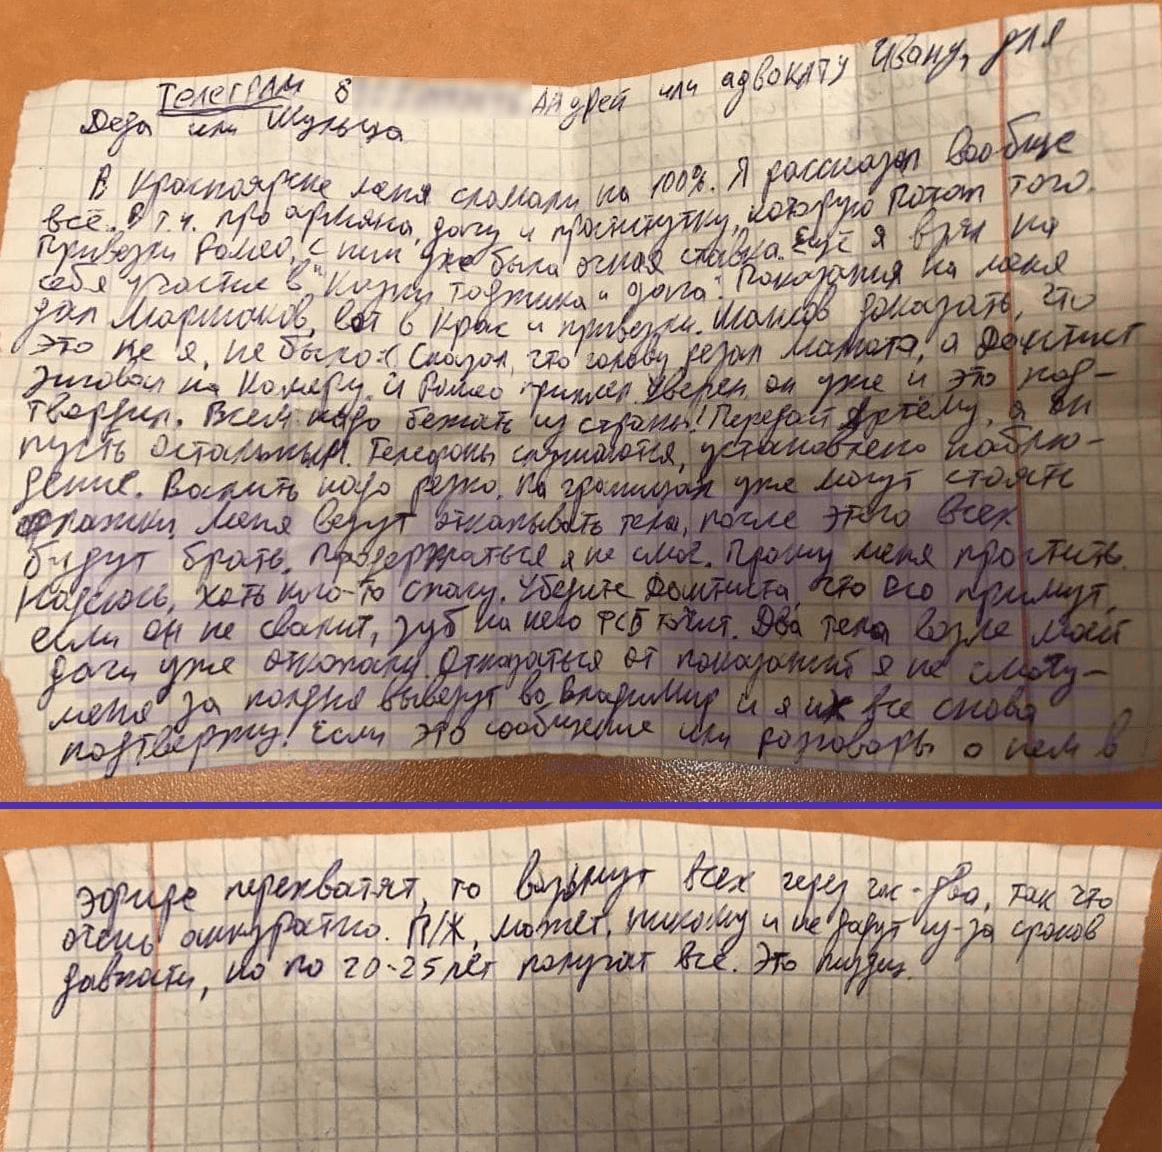 Телеграм 8 Андрей или адвокату Ивану, для
Деда или Шульца
В Красноярске меня сломали на 100%. Я рассказал вообще
всё. В т.ч. про армяна, дачу и проститутку, которую Потап того.
Привезли Ромео, с ним уже была очная ставка. Ещё я взял на
себя участие в "Казни таджика и дага". Показания на меня
дал Мартынов, вот в Крас и привезли. Шансов доказать, что
это не я, не было :( Сказал, что голову резал Мамота, а Дантист
зиговал на камеру. И Ромео приплел. Уверен, он уже и это под-
твердил. Всем надо бежать из страны! Передай Артёму, а он
пусть остальным. Телефоны слушаются, установлено наблю-
дение. Валить надо резко. На границах уже могут стоять
флажки. Меня везут откапывать тела, после этого всех
будут брать. Продержаться я не смог. Прошу меня простить.
Надеюсь, хоть кого-то спасу. Убедите Дантиста, что его примут,
если он не свалит, зуб на него ФСБ точит. Два тела возле моей
дачи уже откопали. Отказаться от показаний я не смогу-
меня за полдня вывезут во Владимир и я их все снова
подтвержу! Если это сообщение или разговоры о нем в
эфире перехватят, то возьмут всех через час-два, так что
очень аккуратно. П/Ж, может, никому и не дадут из-за сроков
давности, но по 20-25 лет получат все. Это пиздец.